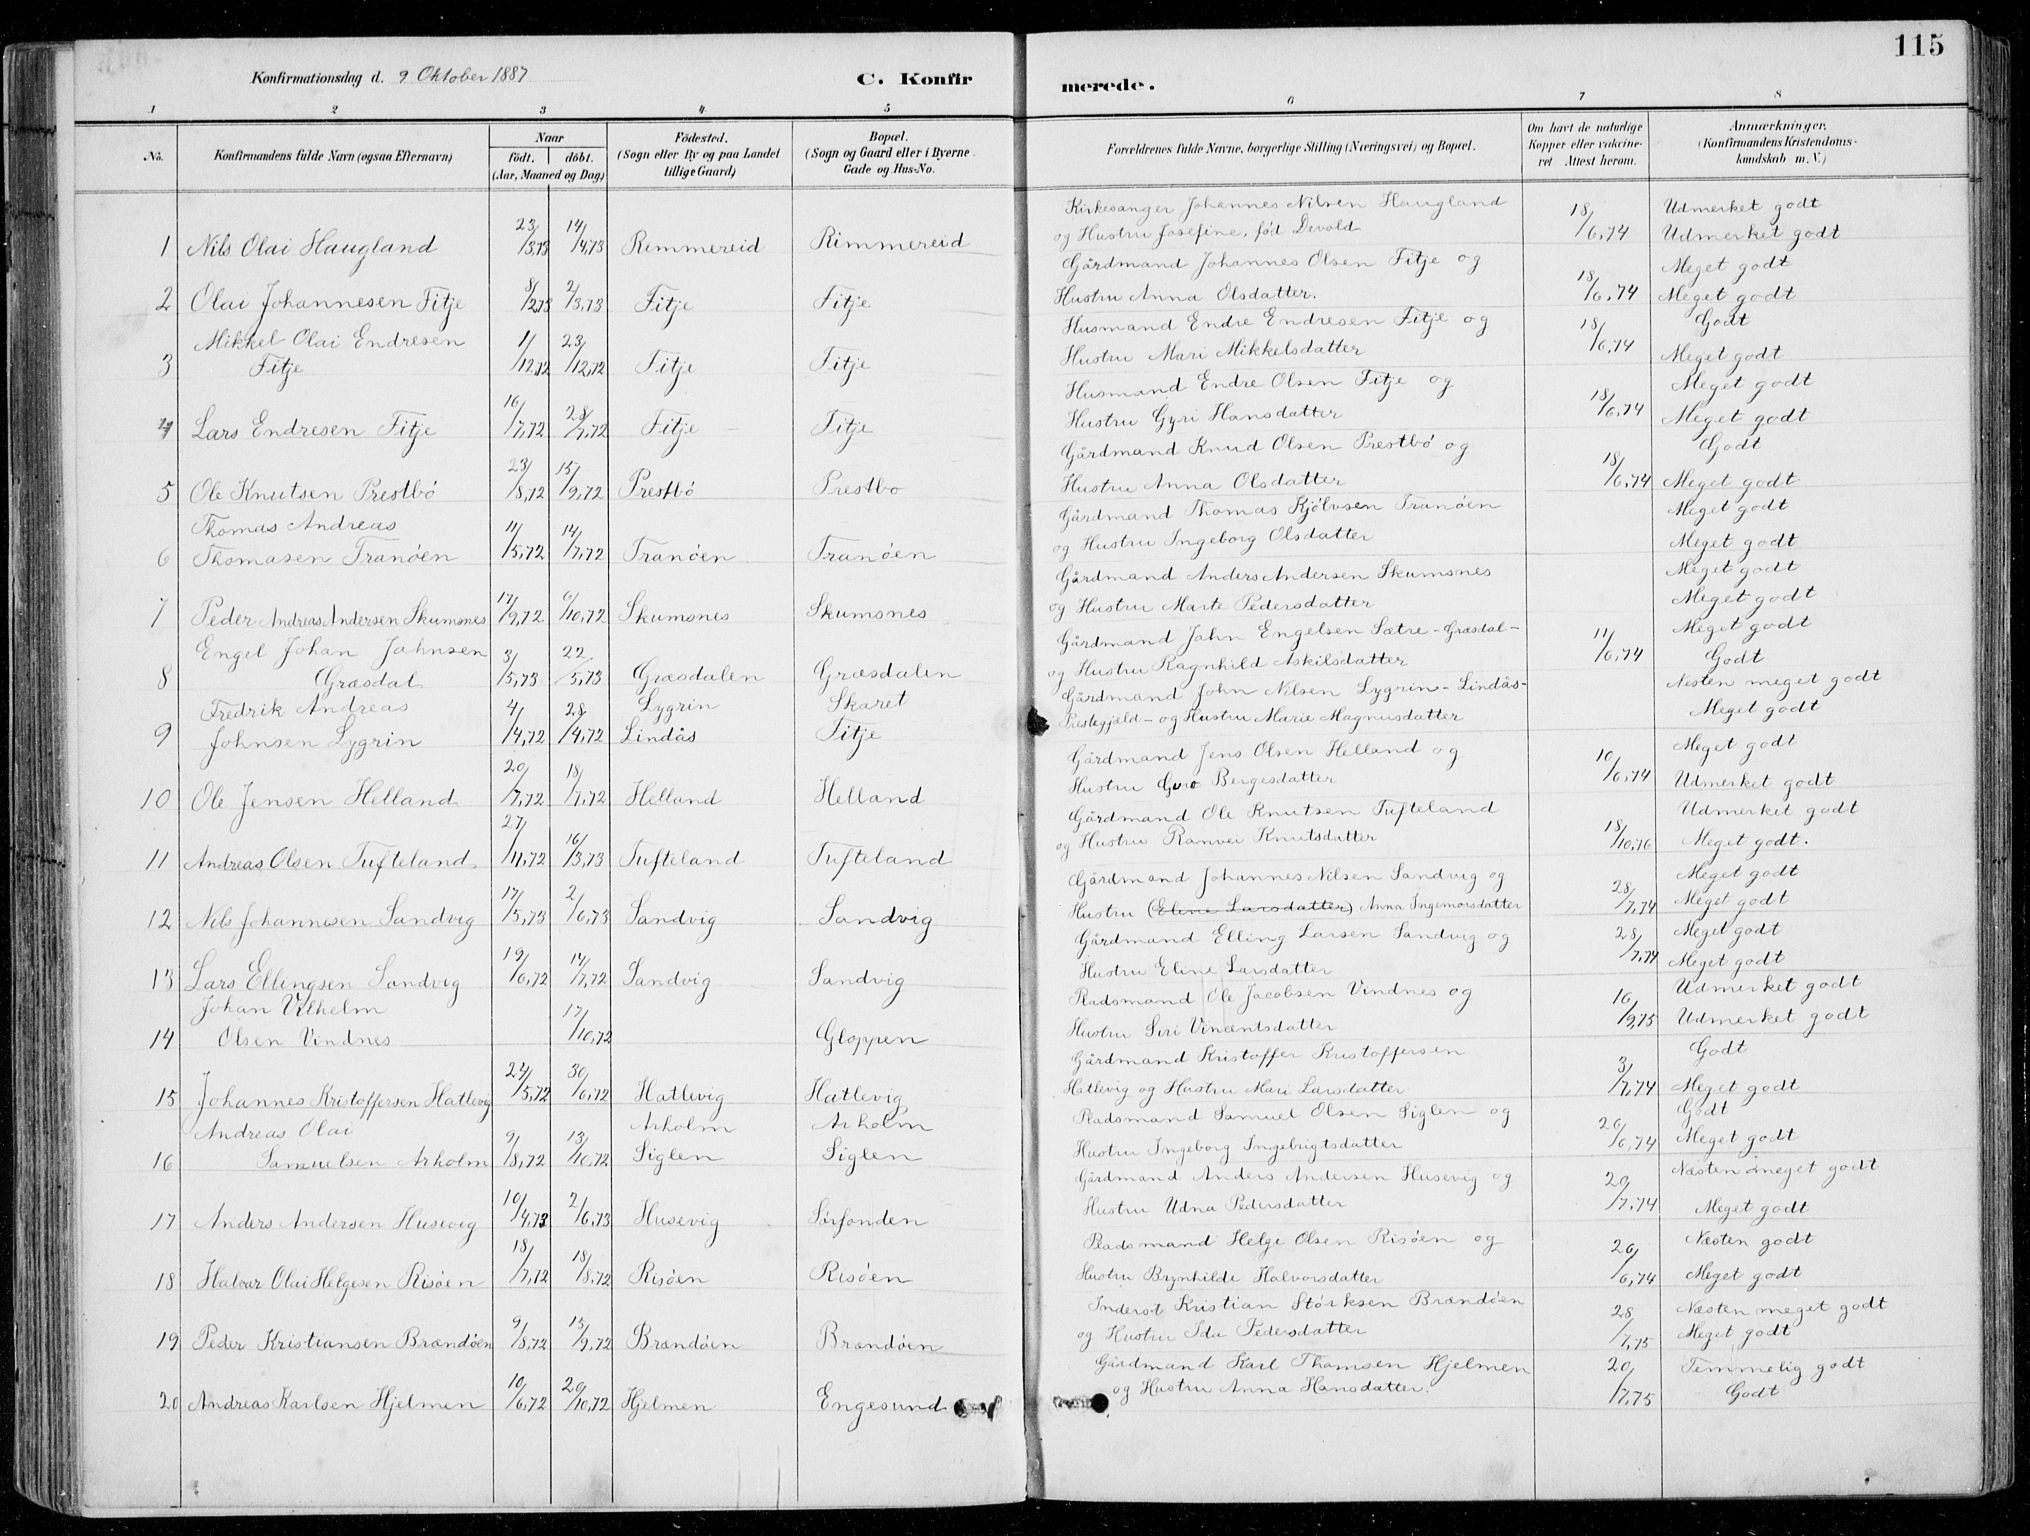 115
Konfirmationsdag d. 9 Oktober 1887
C. Konfir merede.
1 2 3 4 5 6 7 8
No.
Konfirmandens fulde Navn (ogsaa Efternavn)
Naar
født. døbt.
(Aar, Maaned og Dag)
Fødested.
(Sogn eller By og paa Landet
tillige Gaard)
Bopæl.
(Sogn og Gaard eller i Byerne
Gade og Hus-No.
Forældrenes fulde Navne, borgerlige Stilling (Næringsvei) og Bopæl.
Om havt de naturlige
Kopper eller vakcine-
ret Attest herom.
Anmærkninger.
(Konfirmandens Kristendoms-
kundskab m. V.)
1 Nils Olai Haugland 23/3,73 14/4,73 Remmereid Rimmereid
Kirkesanger Johannes Nilsen Haugland
og Hustru Josefine, fød Devold
18/6,74
Udmerket godt
Udmerket godt
2 Olai Johannesen Fitje 8/2,73 2/3,73 Fitje Fitje
Gårdmand Johannes Olsen Fitje og
Hustru Anna Olsdatter.
18/6,74
Meget godt
Meget godt
Mikkel Olai Endresen
3 Fitje 1/12,72 23/12,72 Fitje Fitje
Husmand Endre Endresen Fitje og
Hustru Mari Mikkelsdatter
18/6,74
Godt
Meget godt
4 Lars Endresen Fitje 16/7,72 28/7,72 Fitje Fitje
Husmand Endre Olsen Fitje og
Hustru Gyri Hansdatter
18/6,74
Meget godt
Meget godt
5 Ole Knutsen Prestbö 23/8,72 15/9,72 Prestbö Prestbo
Gårdmand Knud Olsen Prestbö og
Hustru Anna Olsdatter
18/6,74
Godt
Meget godt
Thomas Andreas
6 Thomasen Tranöen 11/5,72 14/7,72 Tranöen Tranöen
Gårdmand Thomas Kjölvsen Tranöen
og Hustru Ingeborg Olsdatter
Meget godt
Meget godt
7 Peder Andreas Andersen Skumsnes 17/9,72 6/10,72 Skumsnes Skumsnes
Gårdmand Anders Andersen Skumsnes
og Hustru Marte Pedersdatter
Meget godt
Meget godt
Engel Johan Jahnsen
8 Græsdal 3/5,73 22/5,73 Græsdalen Græsdalen
Gårdmand Jahn Engelsen Sætre-Græsdal-
og Hustru Ragnhild Askilsdatter
11/6,74
Meget godt
Godt
Fredrik Andreas Lygrin Skaret
9 Johnsen Lygrin 4/4,72 28/4,72 Lindås Fitje
Gårdmand John Nilsen Lygrin-Lindås-
Prestegjeld- og Hustru Marie Magnusdatter
Nesten meget godt
Meget godt
10 Ole Jensen Helland 20/7,72 18/7,72 Helland Helland
Gårdmand Jens Olsen Helland og
Hustru Guro Bergesdatter
10/6,74
Meget godt
Udmerket godt
11 Andreas Olsen Tufteland 27/11,72 16/3,73 Tufteland Tufteland
Gårdmand Ole Knutsen Tufteland
og Hustru Ranvei Knutsdatter
18/10,76
Udmerket godt
Meget godt.
12 Nils Johannesen Sandvig 17/5,73 2/6,73 Sandvig Sandvig
Gårdmand Johannes Nilsen Sandvig og
Hustru (Eline Larsdatter) Anna Ingemorsdatter
28/7,74
Meget godt
Meget godt
13 Lars Ellingsen Sandvig 19/6,72 14/7,72 Sandvig Sandvig
Gårdmand Elling Larsen Sandvig og
Hustru Eline Larsdatter
28/7,74
Meget godt
Meget godt
Johan Vilhelm
14 Olsen Vindnes 17/10,72 Gloppen
Pladsmand Ole Jacobsen Vindnes og
Hustru Siri Vincentsdatter
16/9,75
Udmerket godt
Udmerket godt
15 Johannes Kristoffersen Hatlevig 24/5,72 30/6,72 Hatlevig Hatlevig
Gårdmand Kristoffer Kristoffersen
Hatlevig og Hustru Mari Larsdatter
3/7,74
Godt
Meget godt
Andreas Olai Arholm Arholm
16 Samuelsen Arholm 9/8,72 13/10,72 Siglen Siglen
Pladsmand Samuel Olsen Siglen og
Hustru Ingeborg Ingebrigtsdatter
26/6,74
Godt
Meget godt
17 Anders Andersen Husevig 10/4,73 2/6,73 Husevig Sørfonden
Gårdmand Anders Andersen Husevig og
Hustru Udna Pedersdatter
20/7,74
Næsten meget godt
Meget godt
18 Halvar Olai Helgesen Risöen 18/7,72 18/8,72 Risöen Risöen
Pladsmand Helge Olsen Risöen og
Hustru Brynhilde Halvorsdatter
26/6,74
Næsten godt
Meget godt
19 Peder Kristiansen Brandöen 9/8,72 15/9,72 Brandöen Brandöen
Inderst Kristian Störksen Brandöen
og Hustru Ida Pedersdatter
28/7,75
Næsten meget godt
Meget godt
20 Andreas Karlsen Hjelmen 10/6,72 20/10,72 Hjelmen Engesund
Gårdmand Karl Thomsen Hjelmen
og Hustru Anna Hansdatter.
20/7,75
Temmelig godt
Godt